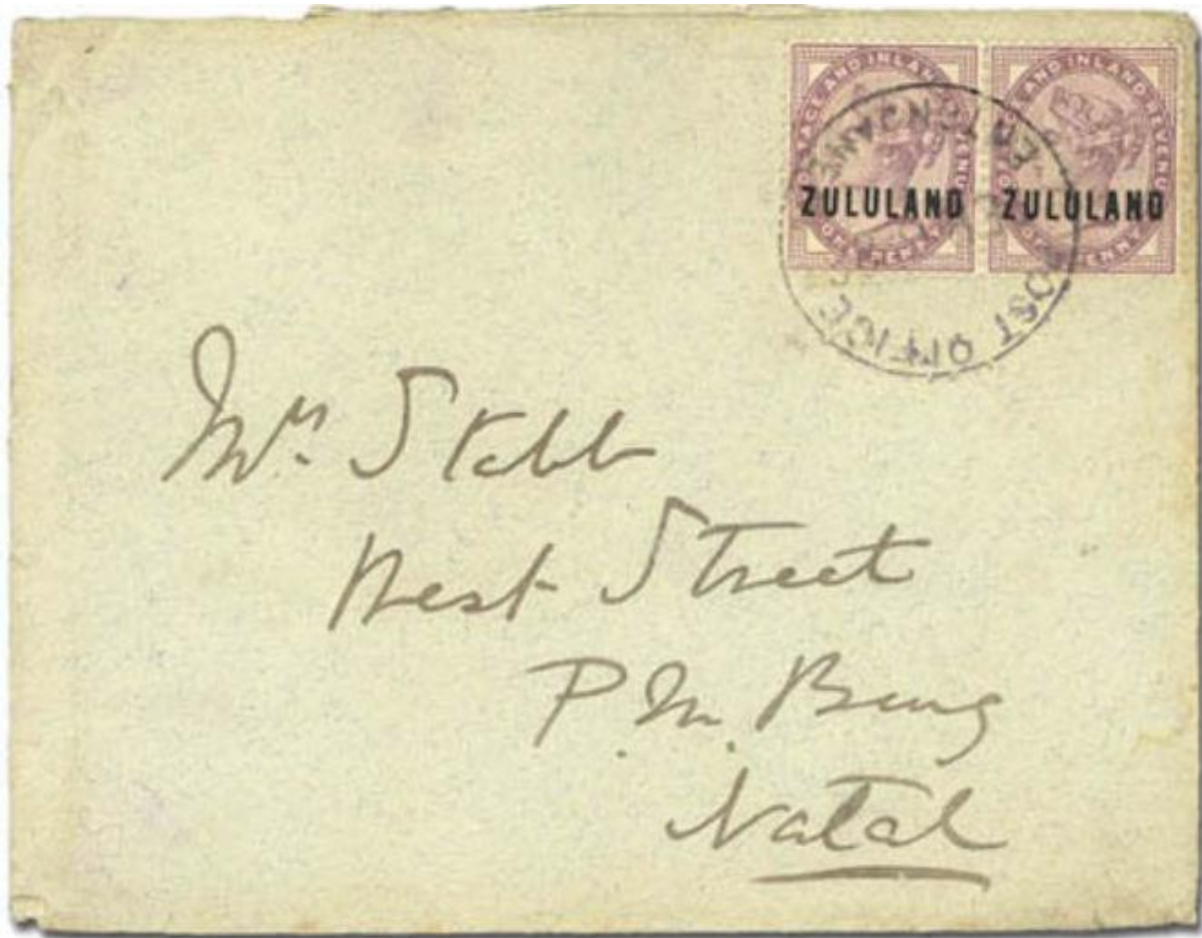 POSTAGE AND INLAND REVENUE
ZULULAND
ONE PENNY
POSTAGE AND INLAND REVENUE
ZULULAND
ONE PENNY
POST OFFICE
Mrs. Stabb
West Street
P.M. Burg
Natal